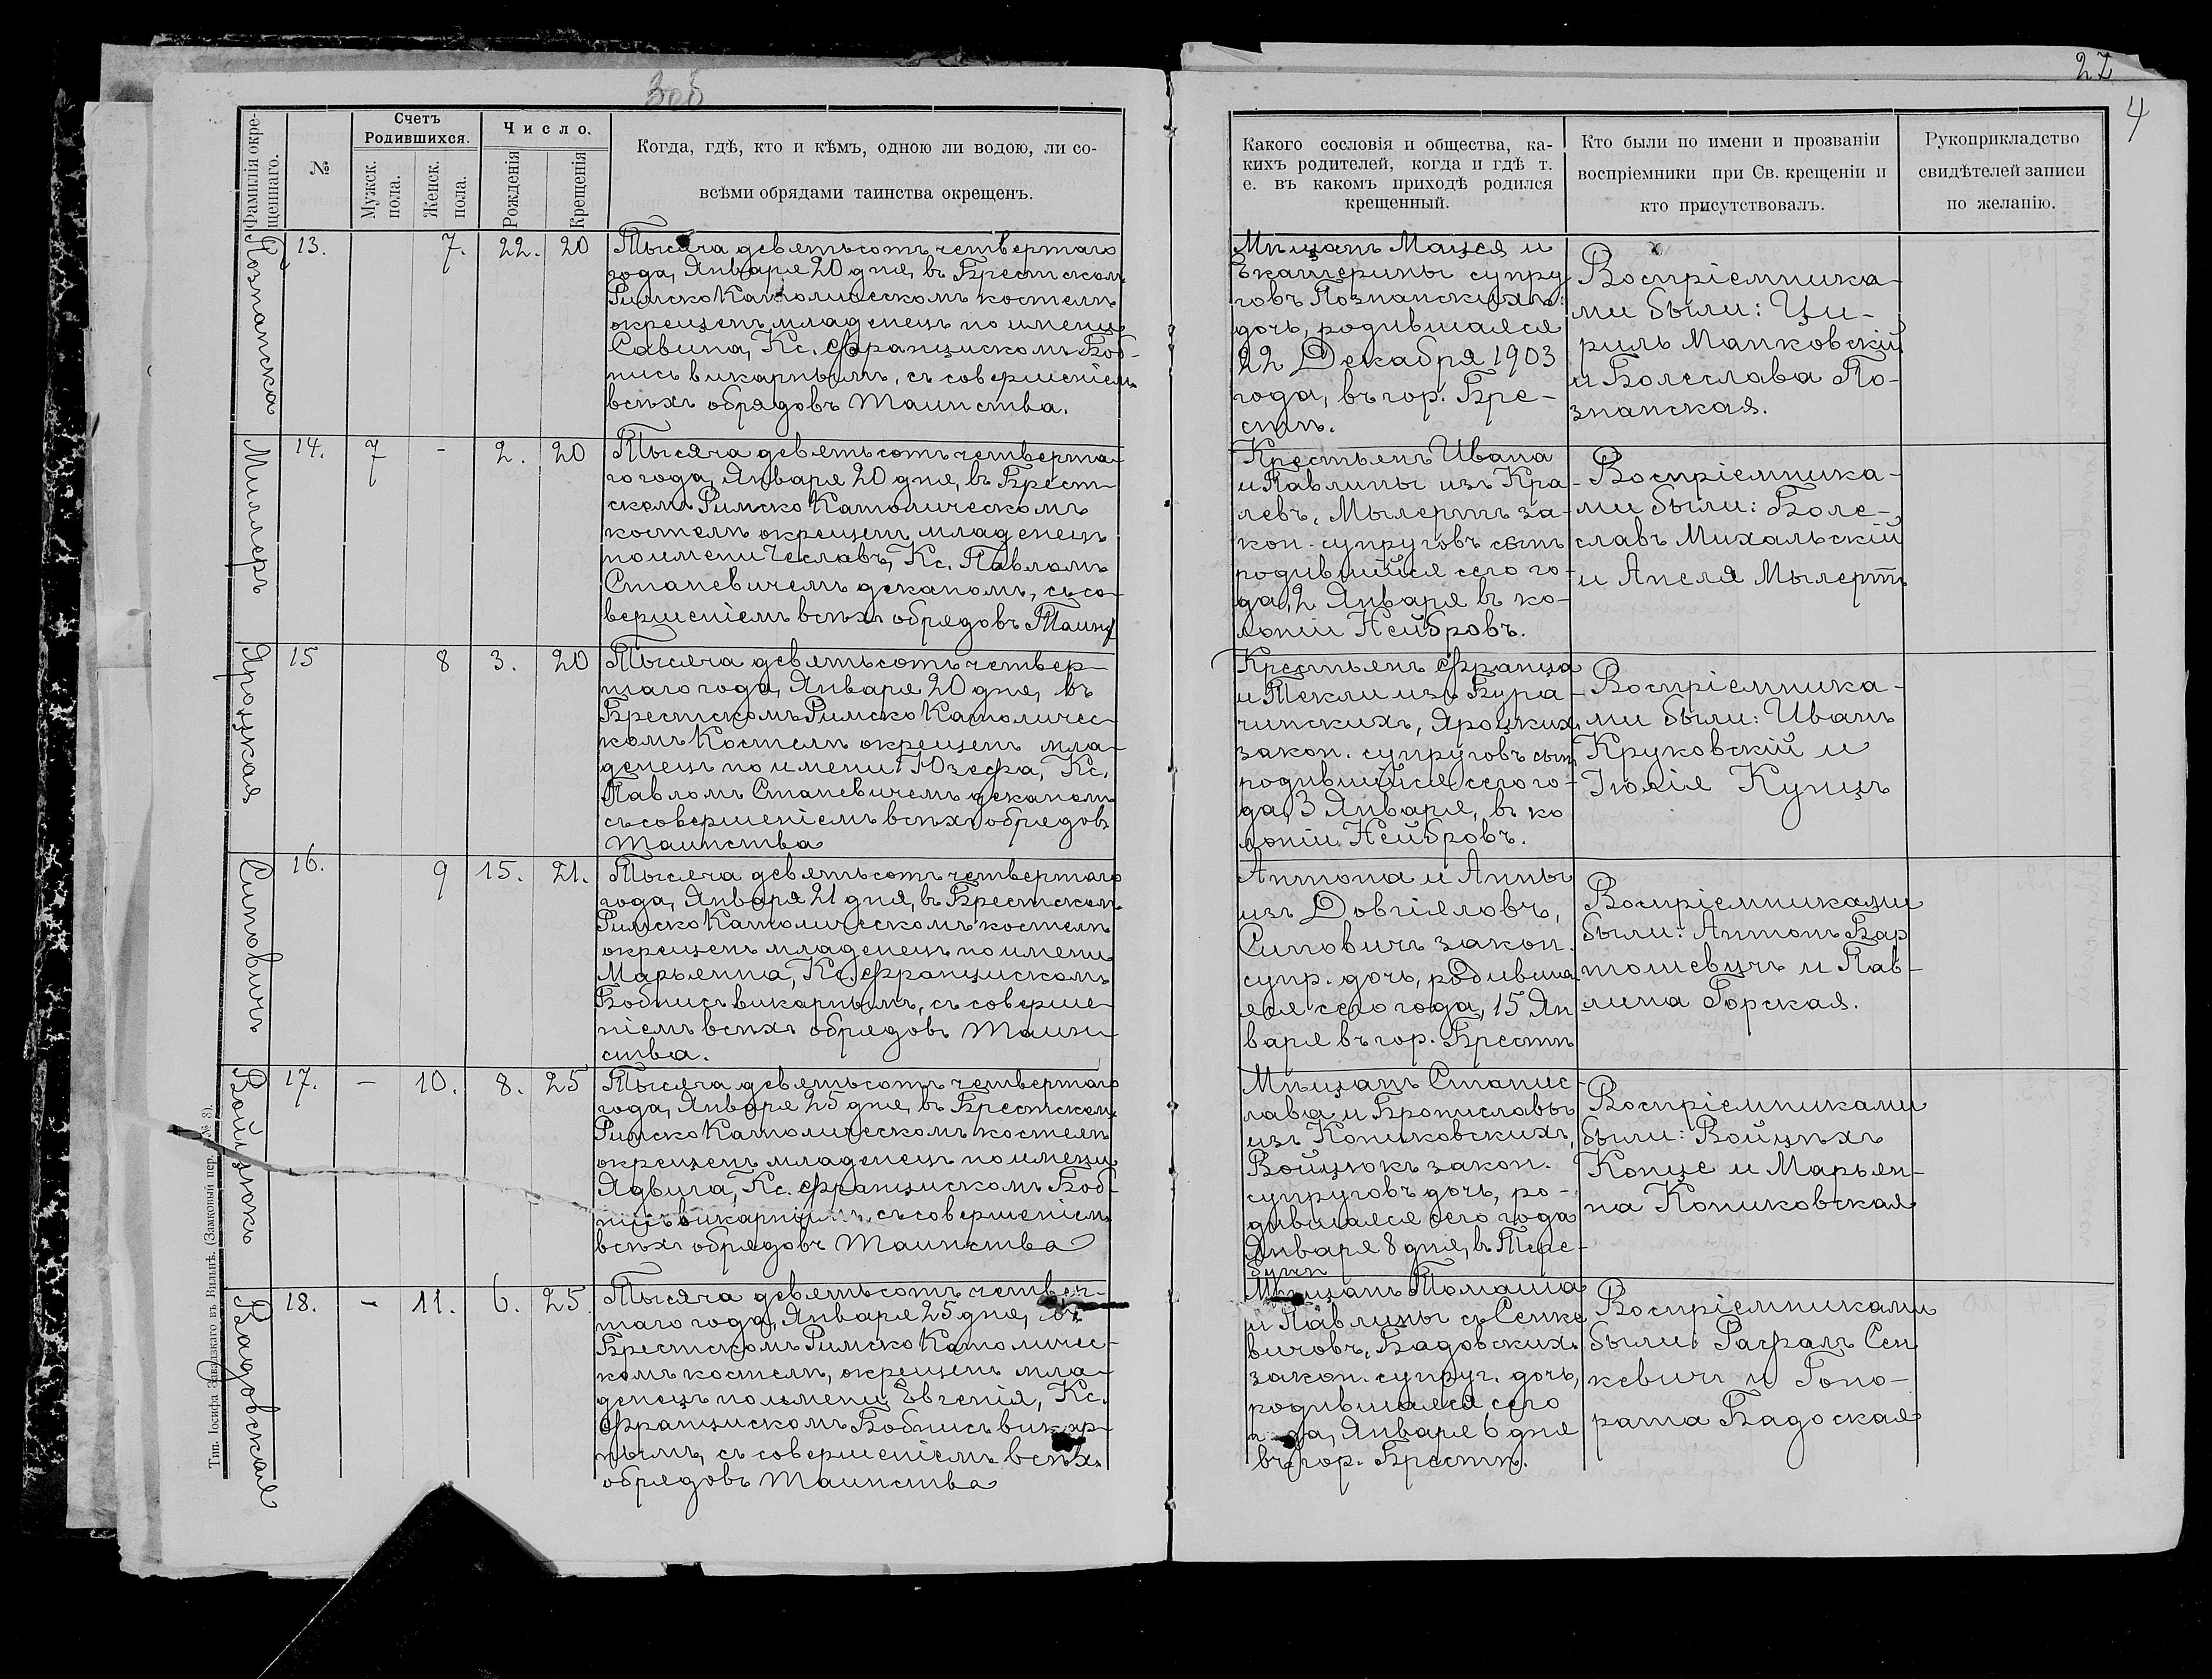 27
4
Фамилія окре-
щеннаго.
№
Счетъ
Родившихся.
Мужск.
пола.
Женск.
пола.
Число.
Рожденія
Крещенія
Когда, гдѣ, кто и кѣмъ, одною ли водою, ли со-
всѣми обрядами таинства окрещенъ.
Какого сословія и общества, ка-
кихъ родителей, когда и гдѣ т.
е. въ какомъ приходѣ родился
крещенный.
Кто были по имени и прозваніи
воспріемники при Св. крещеніи и
кто присутствовалъ.
Рукоприкладство
свидѣтелей записи
по желанію.
Познанска
13.
7.
22.
20
Тысяча девятьсотъ четвертаго
года, Января 20 дня, въ Брестском
Римско Католическомъ костелѣ
окрещенъ младенецъ по имени
Савина, Кс. Францискомъ Боб-
нисъ викарнымъ, съ совершеніемъ
всѣхъ обрядовъ Таинства.
Мѣщанъ Мацея и
Екатерины супру
говъ Познанскихъ:
дочь, родившаяся
22 Декабря 1903
года, въ гор. Бре-
стѣ.
Воспріемника-
ми были: Ци-
риль Манковскій
и Болеслава По-
знанская.
Миллеръ
14.
7
-
2.
20
Тысяча девятьсотъ четверта-
го года, Января 20 дня, въ Брест-
скомъ Римско Католическомъ
костелѣ окрещенъ младенецъ
по имени Чеславъ, Кс. Павломъ
Станевичемъ деканомъ, съ со-
вершеніемъ всѣхъ обрядовъ Таин
Крестьянъ Ивана
и Павлины изъ Кра-
левъ, Мылертъ за-
кон. супруговъ сынъ
родившійся сего го-
да, 2 Января въ ко-
лоніи Нейбровъ.
Воспріемника-
ми были: Боле-
славъ Михальскій
и Анеля Мылертъ
Яроцкая
15
8
3.
20
Тысяча девятьсотъ четвер-
таго года, Января 20 дня, въ
Брестскомъ Римско Католичес-
комъ Костелѣ окрещенъ мла-
денецъ по имени Юзефа, Кс.
Павломъ Станевичемъ деканомъ
съ совершеніемъ всѣхъ обрядовъ
Таинства
Крестьянъ Франца
и Текли изъ Бура-
чинскихъ, Яроцких
закон. супруговъ сынъ
родившійся сего го-
да, 3 Января, въ ко
лоніи Нейбровъ.
Воспріемника-
ми были: Иванъ
Круковскій и
Юлія Кунцъ
Ситовичъ
16.
9
15.
21.
Тысяча девятьсотъ четвертаго
года, Января 21 дня, въ Брестском
Римско Католическомъ костелѣ
окрещенъ младенецъ по имени
Марьянна, Кс. Францискомъ
Бобнисъ викарнымъ, съ соверше-
ніемъ всѣхъ обрядовъ Таин-
ства.
Антона и Анны
изъ Довгіяловъ,
Ситовичъ закон.
супр. дочь, родивша
яся сего года, 15 Ян
варя въ гор. Брестѣ
Воспріемниками
были: Антонъ Бар
тошевичъ и Пав-
лина Горская.
Войцюкъ
17.
-
10.
8.
25
Тысяча девятьсотъ четвертаго
года, Января 25 дня, въ Брестском
Римско Католическомъ костелѣ
окрещенъ младенецъ по имени
Ядвига, Кс. Францискомъ Боб-
нисъ викарнымъ, съ совершеніем
всѣхъ обрядовъ Таинства
Мѣщанъ Станис-
лава и Брониславы
изъ Кониковскихъ,
Войцюкъ закон.
супруговъ дочь, ро-
дившаяся сего года
Января 8 дня, въ Тере-
Воспріемниками
были: Войцѣхъ
Конце и Марьян-
на Кониковская
Бадовская
18.
-
11.
6.
25.
Тысяча девятьсотъ четвер-
таго года, Января 25 дня, въ
Брестскомъ Римско Католичес-
комъ костелѣ, окрещенъ мла-
денецъ по имени Евгенія, Кс.
Францискомъ Бобнисъ викар-
нымъ, съ совершеніемъ всѣхъ
обрядовъ Таинства
Мѣщанъ Томаша
и Павлины съ Сенке
вичовъ, Бадовских
закон. супруг. дочь,
родившаяся сего
года, Января 6 дня
въ гор. Брестѣ.
Воспріемниками
были: Рафалъ Сен
кевичъ и Гоно-
рата Бадоская
Тип. Іосифа Завадзкаго въ Вильнѣ. (Замковый пер. № 8).